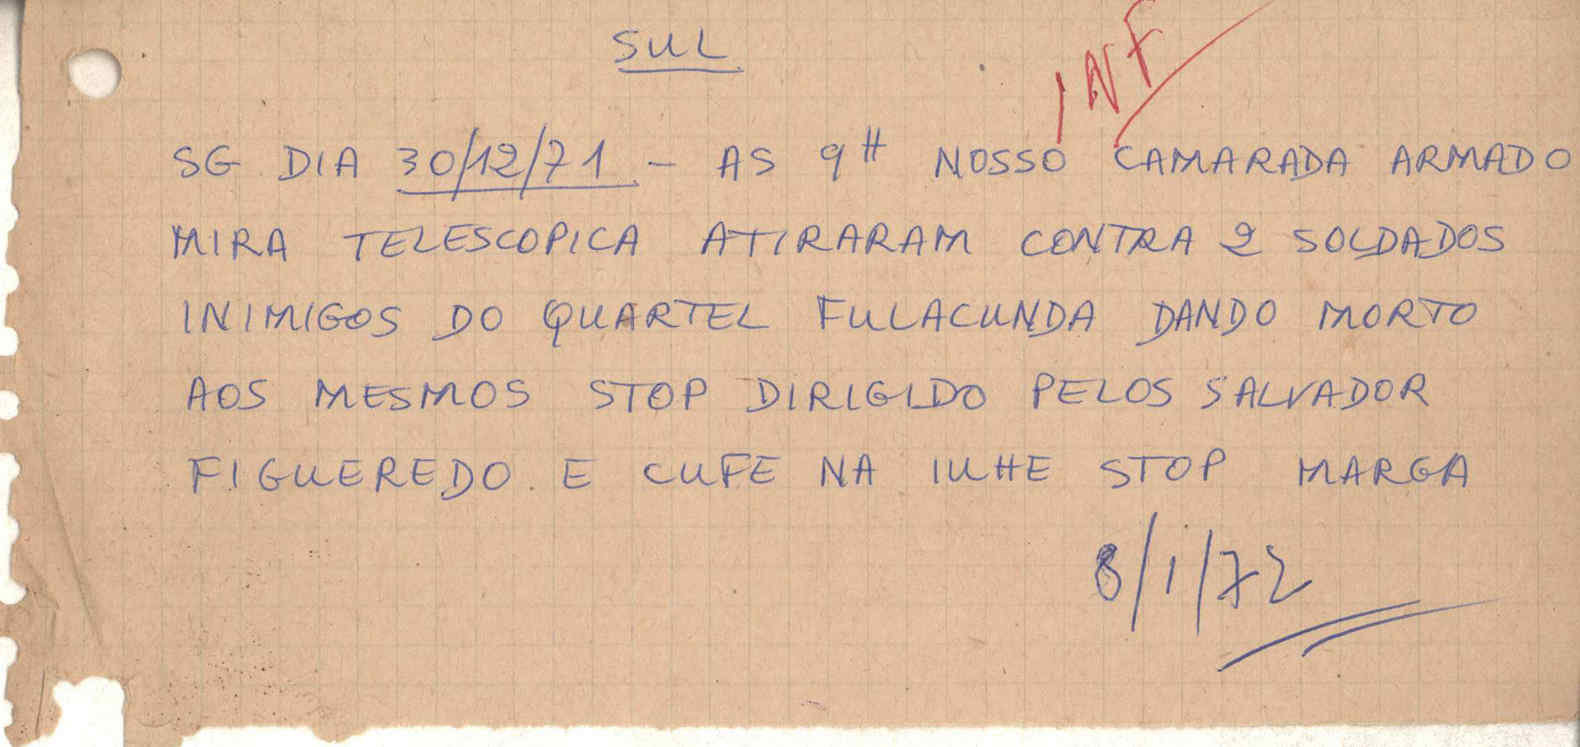 SUL
INF
SG DIA 30/12/71 - AS 9H NOSSO CAMARADA ARMADO
MIRA TELESCOPICA ATIRARAM CONTRA 2 SOLDADOS
INIMIGOS DO QUARTEL FULACUNDA DANDO MORTO
AOS MESMOS STOP DIRIGIDO PELOS SALVADOR
FIGUEREDO. E CUFE NA IUHE STOP MARGA
8/1/72